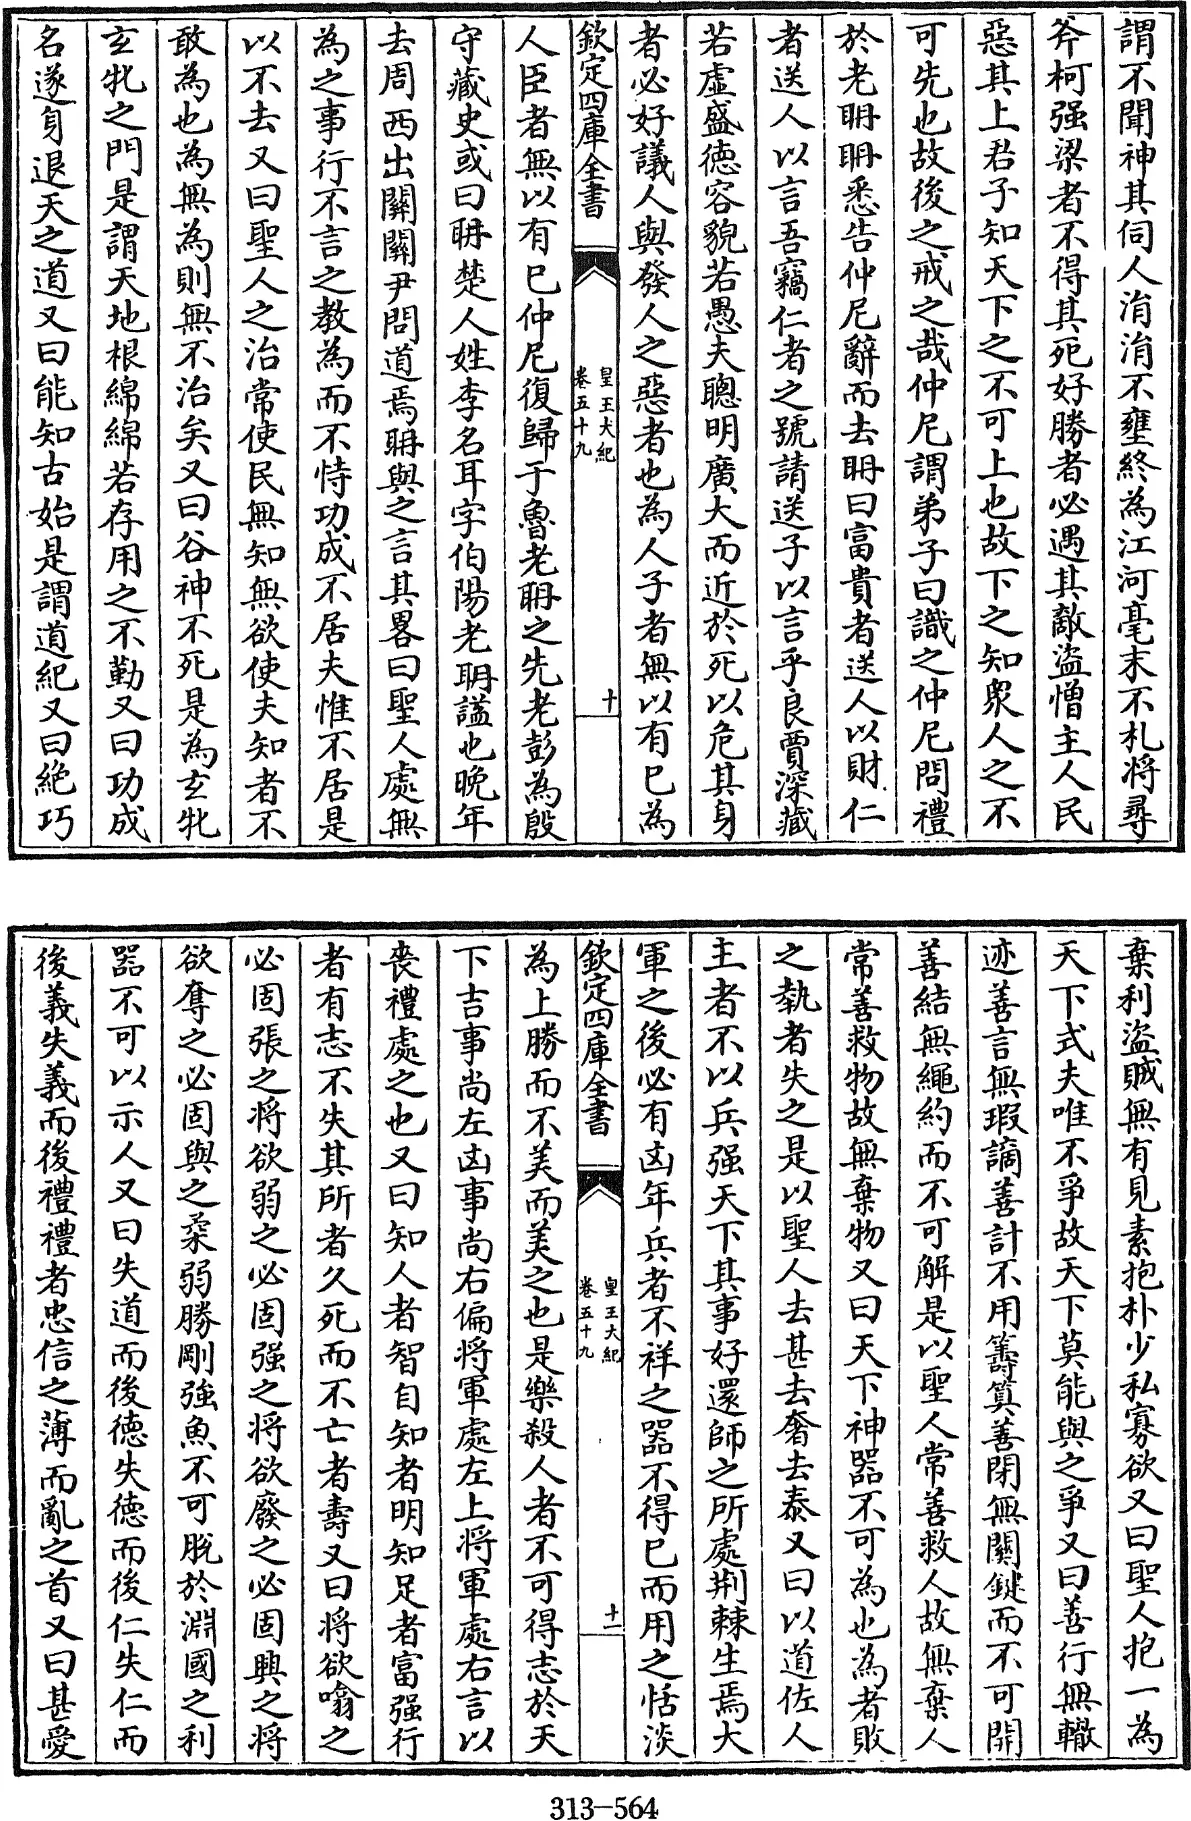 謂不聞神其伺人涓涓不壅終為江河毫末不札將尋
斧柯强梁者不得其死好勝者必遇其敵盜憎主人民
惡其上君子知天下之不可上也故下之知衆人之不
可先也故後之戒之哉仲尼謂弟子曰識之仲尼問禮
於老耼耼悉告仲尼辭而去耼曰富貴者送人以財仁
者送人以言吾竊仁者之號請送子以言乎良賈深藏
若虛盛德容貌若愚夫聰明廣大而近於死以危其身
者必好議人與發人之惡者也為人子者無以有已為
欽定四庫全書 皇王大紀 卷五十九 十
人臣者無以有已仲尼復歸于魯老耼之先老彭為殷
守藏史或曰耼楚人姓李名耳字伯陽老耼謚也晚年
去周西出關關尹問道焉耼與之言其畧曰聖人處無
為之事行不言之教為而不恃功成不居夫惟不居是
以不去又曰聖人之治常使民無知無欲使夫知者不
敢為也為無為則無不治矣又曰谷神不死是為玄牝
玄牝之門是謂天地根綿綿若存用之不勤又曰功成
名遂身退天之道又曰能知古始是謂道紀又曰絶巧
棄利盜賊無有見素抱朴少私寡欲又曰聖人抱一為
天下式夫唯不爭故天下莫能與之爭又曰善行無轍
迹善言無瑕謫善計不用籌筭善閉無關鍵而不可開
善結無繩約而不可解是以聖人常善救人故無棄人
常善救物故無棄物又曰天下神器不可為也為者敗
之執者失之是以聖人去甚去奢去泰又曰以道佐人
主者不以兵强天下其事好還師之所處荆棘生焉大
軍之後必有凶年兵者不祥之器不得已而用之恬淡
欽定四庫全書 皇王大紀 卷五十九 十一
為上勝而不美而美之也是樂殺人者不可得志於天
下吉事尚左凶事尚右偏將軍處左上將軍處右言以
喪禮處之也又曰知人者智自知者明知足者富强行
者有志不失其所者久死而不亡者壽又曰將欲噏之
必固張之將欲弱之必固强之將欲廢之必固興之將
欲奪之必固與之柔弱勝剛强魚不可脫於淵國之利
器不可以示人又曰失道而後德失德而後仁失仁而
後義失義而後禮禮者忠信之薄而亂之首又曰甚愛
313-564